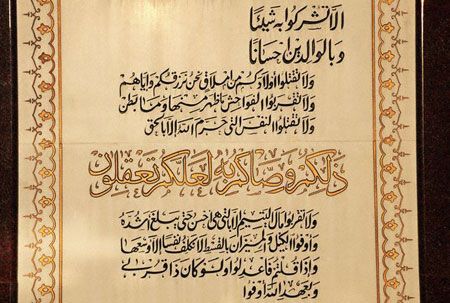 ألا تشركوا به شيئا
وبالوالدين إحسانا
ولا تقتلوا أولادكم من إملاق نحن نرزقكم وإياهم
ولا تقربوا الفواحش ما ظهر منها وما بطن
ولا تقتلوا النفس التي حرم الله إلا بالحق
ذلكم وصاكم به لعلكم تعقلون
ولا تقربوا مال اليتيم إلا بالتي هي أحسن حتى يبلغ أشده
وأوفوا الكيل والميزان بالقسط لا نكلف نفسا إلا وسعها
وإذا قلتم فاعدلوا ولو كان ذا قربى
وبعهد الله أوفوا